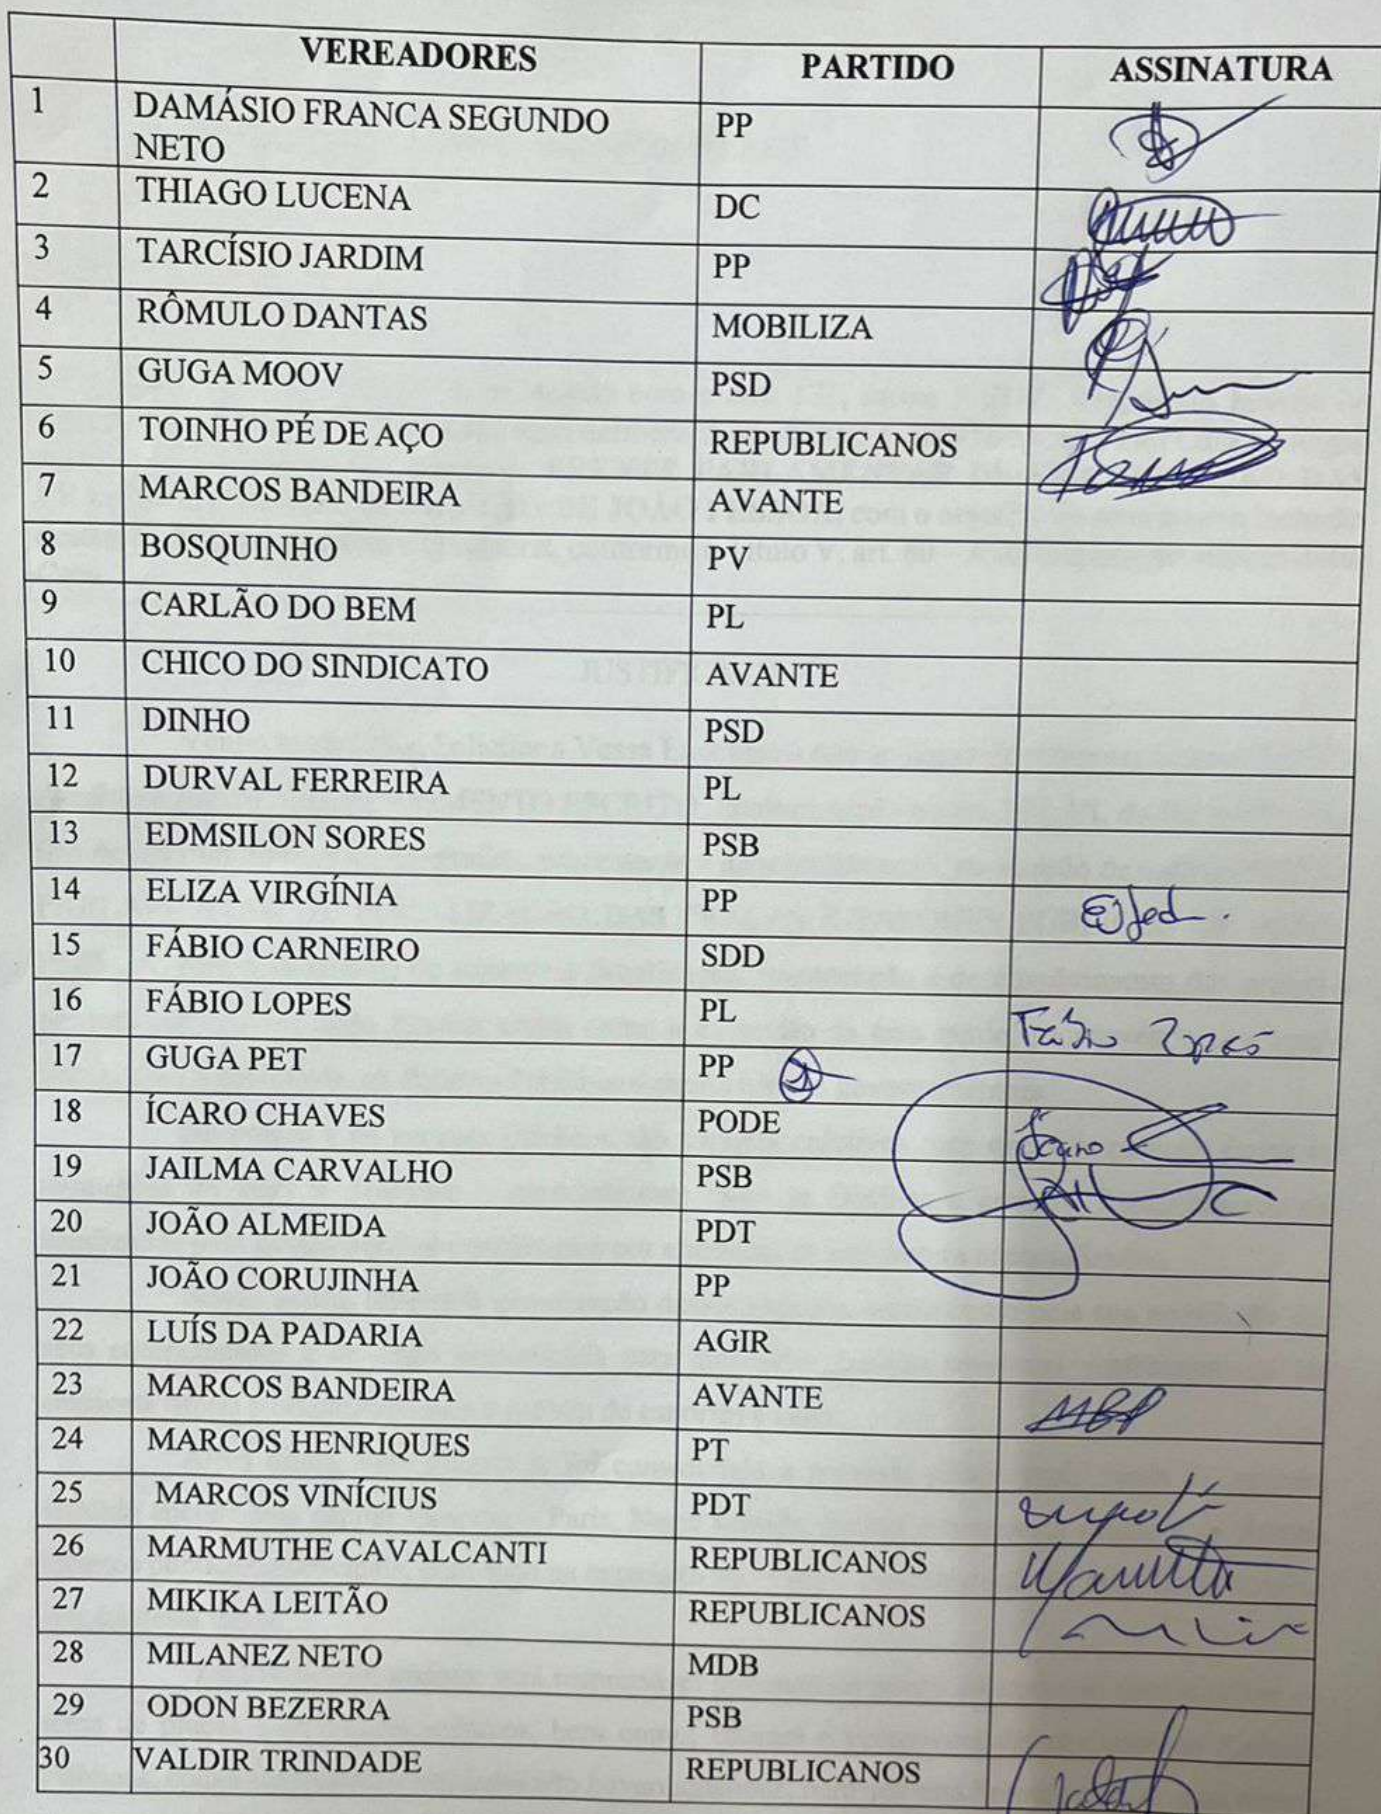 VEREADORES PARTIDO ASSINATURA
1 DAMÁSIO FRANCA SEGUNDO NETO PP
2 THIAGO LUCENA DC
3 TARCÍSIO JARDIM PP
4 RÔMULO DANTAS MOBILIZA
5 GUGA MOOV PSD
6 TOINHO PÉ DE AÇO REPUBLICANOS
7 MARCOS BANDEIRA AVANTE
8 BOSQUINHO PV
9 CARLÃO DO BEM PL
10 CHICO DO SINDICATO AVANTE
11 DINHO PSD
12 DURVAL FERREIRA PL
13 EDMSILON SORES PSB
14 ELIZA VIRGÍNIA PP
15 FÁBIO CARNEIRO SDD
16 FÁBIO LOPES PL Fábio Lopes
17 GUGA PET PP
18 ÍCARO CHAVES PODE Ícaro
19 JAILMA CARVALHO PSB
20 JOÃO ALMEIDA PDT
21 JOÃO CORUJINHA PP
22 LUÍS DA PADARIA AGIR
23 MARCOS BANDEIRA AVANTE
24 MARCOS HENRIQUES PT
25 MARCOS VINÍCIUS PDT
26 MARMUTHE CAVALCANTI REPUBLICANOS
27 MIKIKA LEITÃO REPUBLICANOS
28 MILANEZ NETO MDB
29 ODON BEZERRA PSB
30 VALDIR TRINDADE REPUBLICANOS